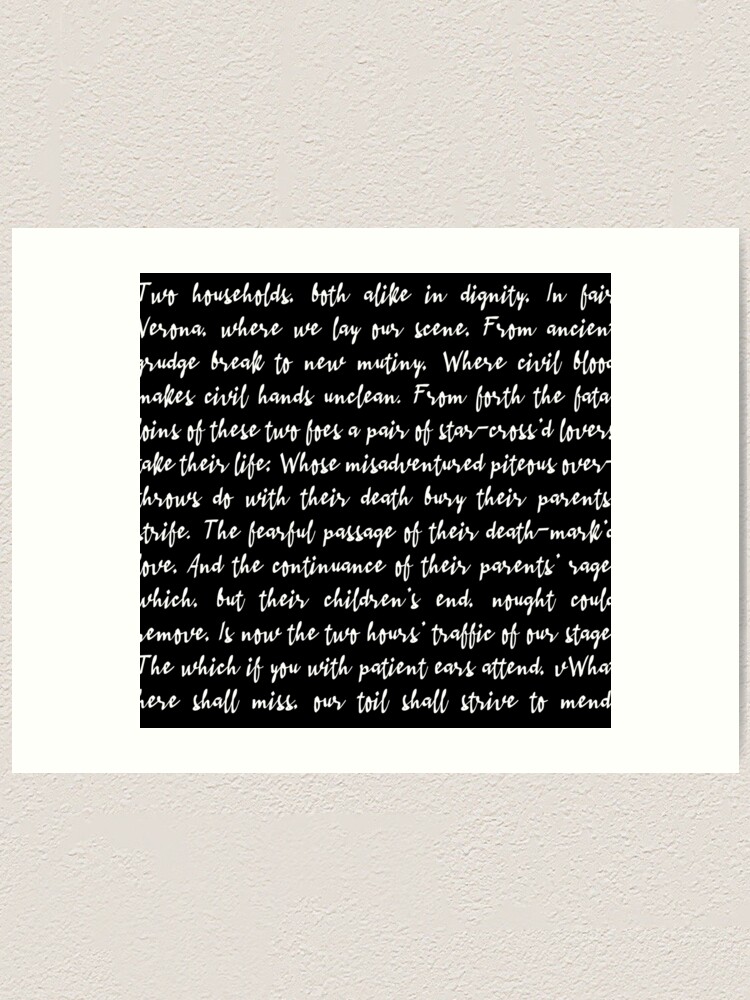 Two households. both alike in dignity. In fair
Verona. where we lay our scene. From ancient
grudge break to new mutiny. Where civil blood
makes civil hands unclean. From forth the fata
loins of these two foes a pair of star-cross'd lovers
take their life: Whose misadventured piteous over-
throws do with their death bury their parents
strife. The fearful passage of their death-mark'd
love. And the continuance of their parents' rage
which. but their children's end. nought could
remove. Is now the two hours' traffic of our stage
The which if you with patient ears attend. vWhat
here shall miss. our toil shall strive to mend